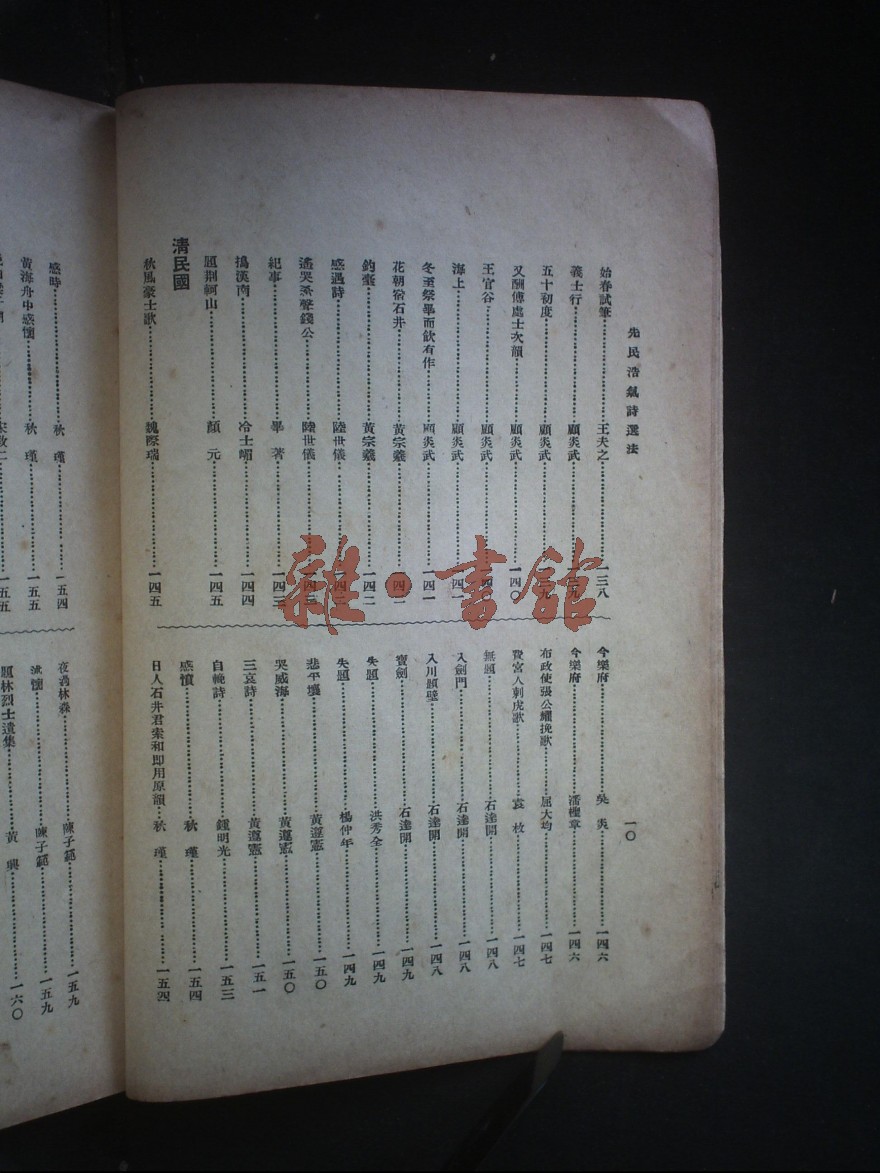 先民浩氣詩選法
一〇
始春試筆 王夫之 一三八
義士行 顧炎武 一三九
五十初度 顧炎武 一三九
又酬傅處士次韻 顧炎武 一四〇
王官谷 顧炎武
海上 顧炎武 一四一
冬至祭畢而飲有作 顧炎武 一四一
花朝宿石井 黃宗羲
釣臺 黃宗羲 一四二
感遇詩 陸世儀
遙哭希聲錢公 陸世儀
紀事 畢著
搗溪南 冷士嵋 一四四
題荆軻山 顏元 一四五
清民國
秋風豪士歌 魏際瑞 一四五
今樂府 吳炎 一四六
今樂府 潘檉章 一四六
布政使張公耀挽歌 屈大均 一四七
費宮人刺虎歌 袁枚 一四七
無題 石達開 一四八
入劍門 石達開 一四八
入川題壁 石達開 一四八
寶劍 石達開 一四九
失題 洪秀全 一四九
失題 楊仲年 一四九
悲平壤 黃遵憲 一五〇
哭威海 黃遵憲 一五〇
三哀詩 黃遵憲 一五一
自輓詩 鍾明光 一五三
感憤 秋瑾 一五四
日人石井君索和即用原韻 秋瑾 一五四
感時 秋瑾 一五四
黃海舟中感懷 秋瑾 一五五
一五五
夜過林森 陳子範 一五九
懷 陳子範 一五九
題林烈士遺集 黃興 一六〇
雜·書館